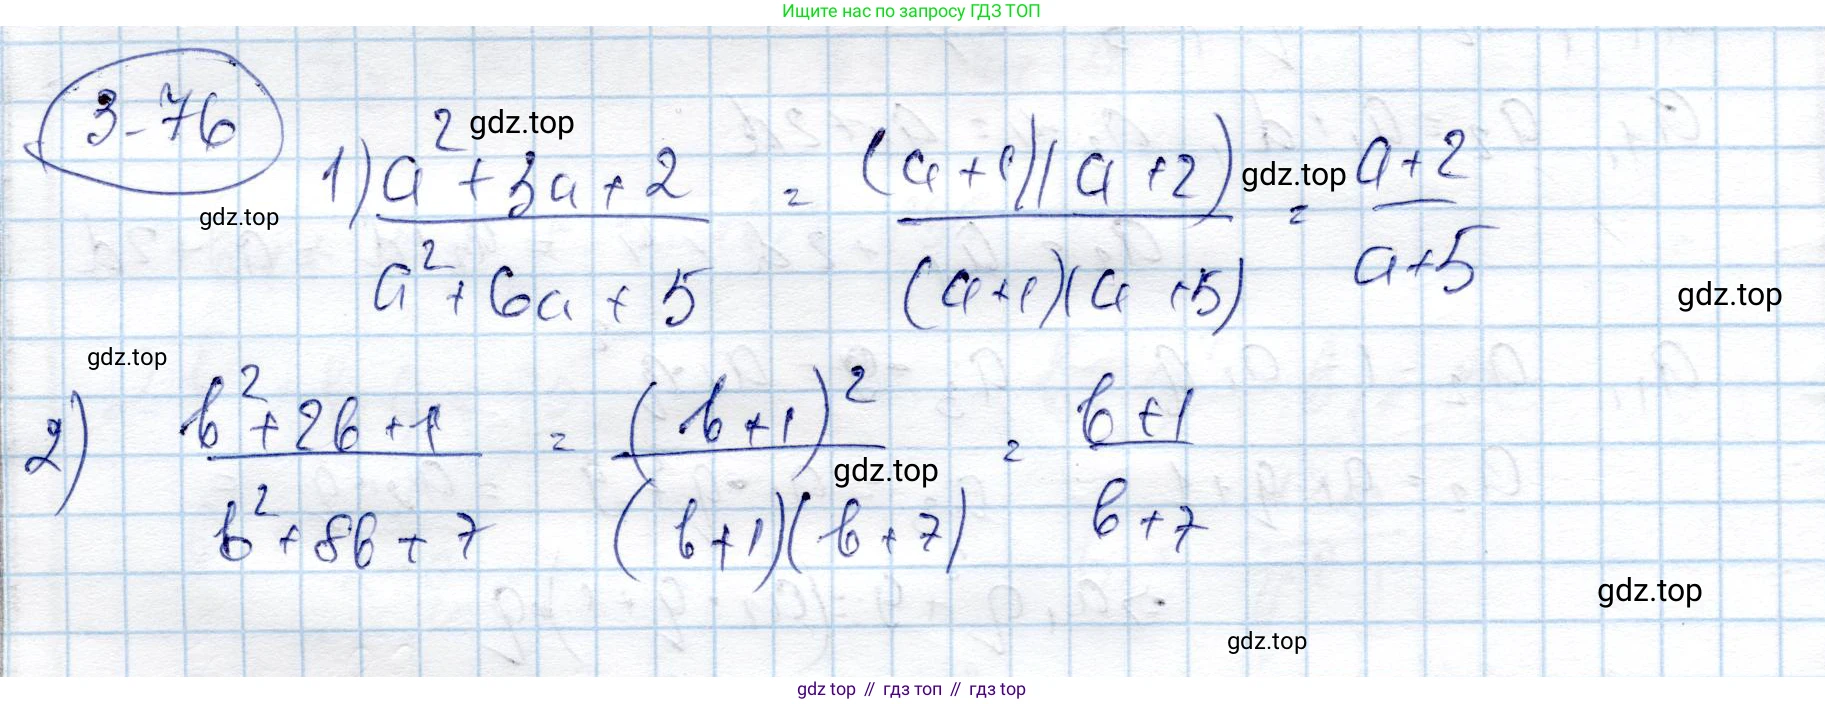 Ищите нас по запросу ГДЗ ТОП
3-76
gdz.top
1) (a² + 3a + 2) / (a² + 6a + 5) = ((a + 1)(a + 2)) / ((a + 1)(a + 5)) = (a + 2) / (a + 5)
gdz.top
gdz.top
gdz.top
gdz.top
2) (b² + 2b + 1) / (b² + 8b + 7) = (b + 1)² / ((b + 1)(b + 7)) = (b + 1) / (b + 7)
gdz.top
gdz.top
gdz.top
gdz top // гдз топ // gdz top